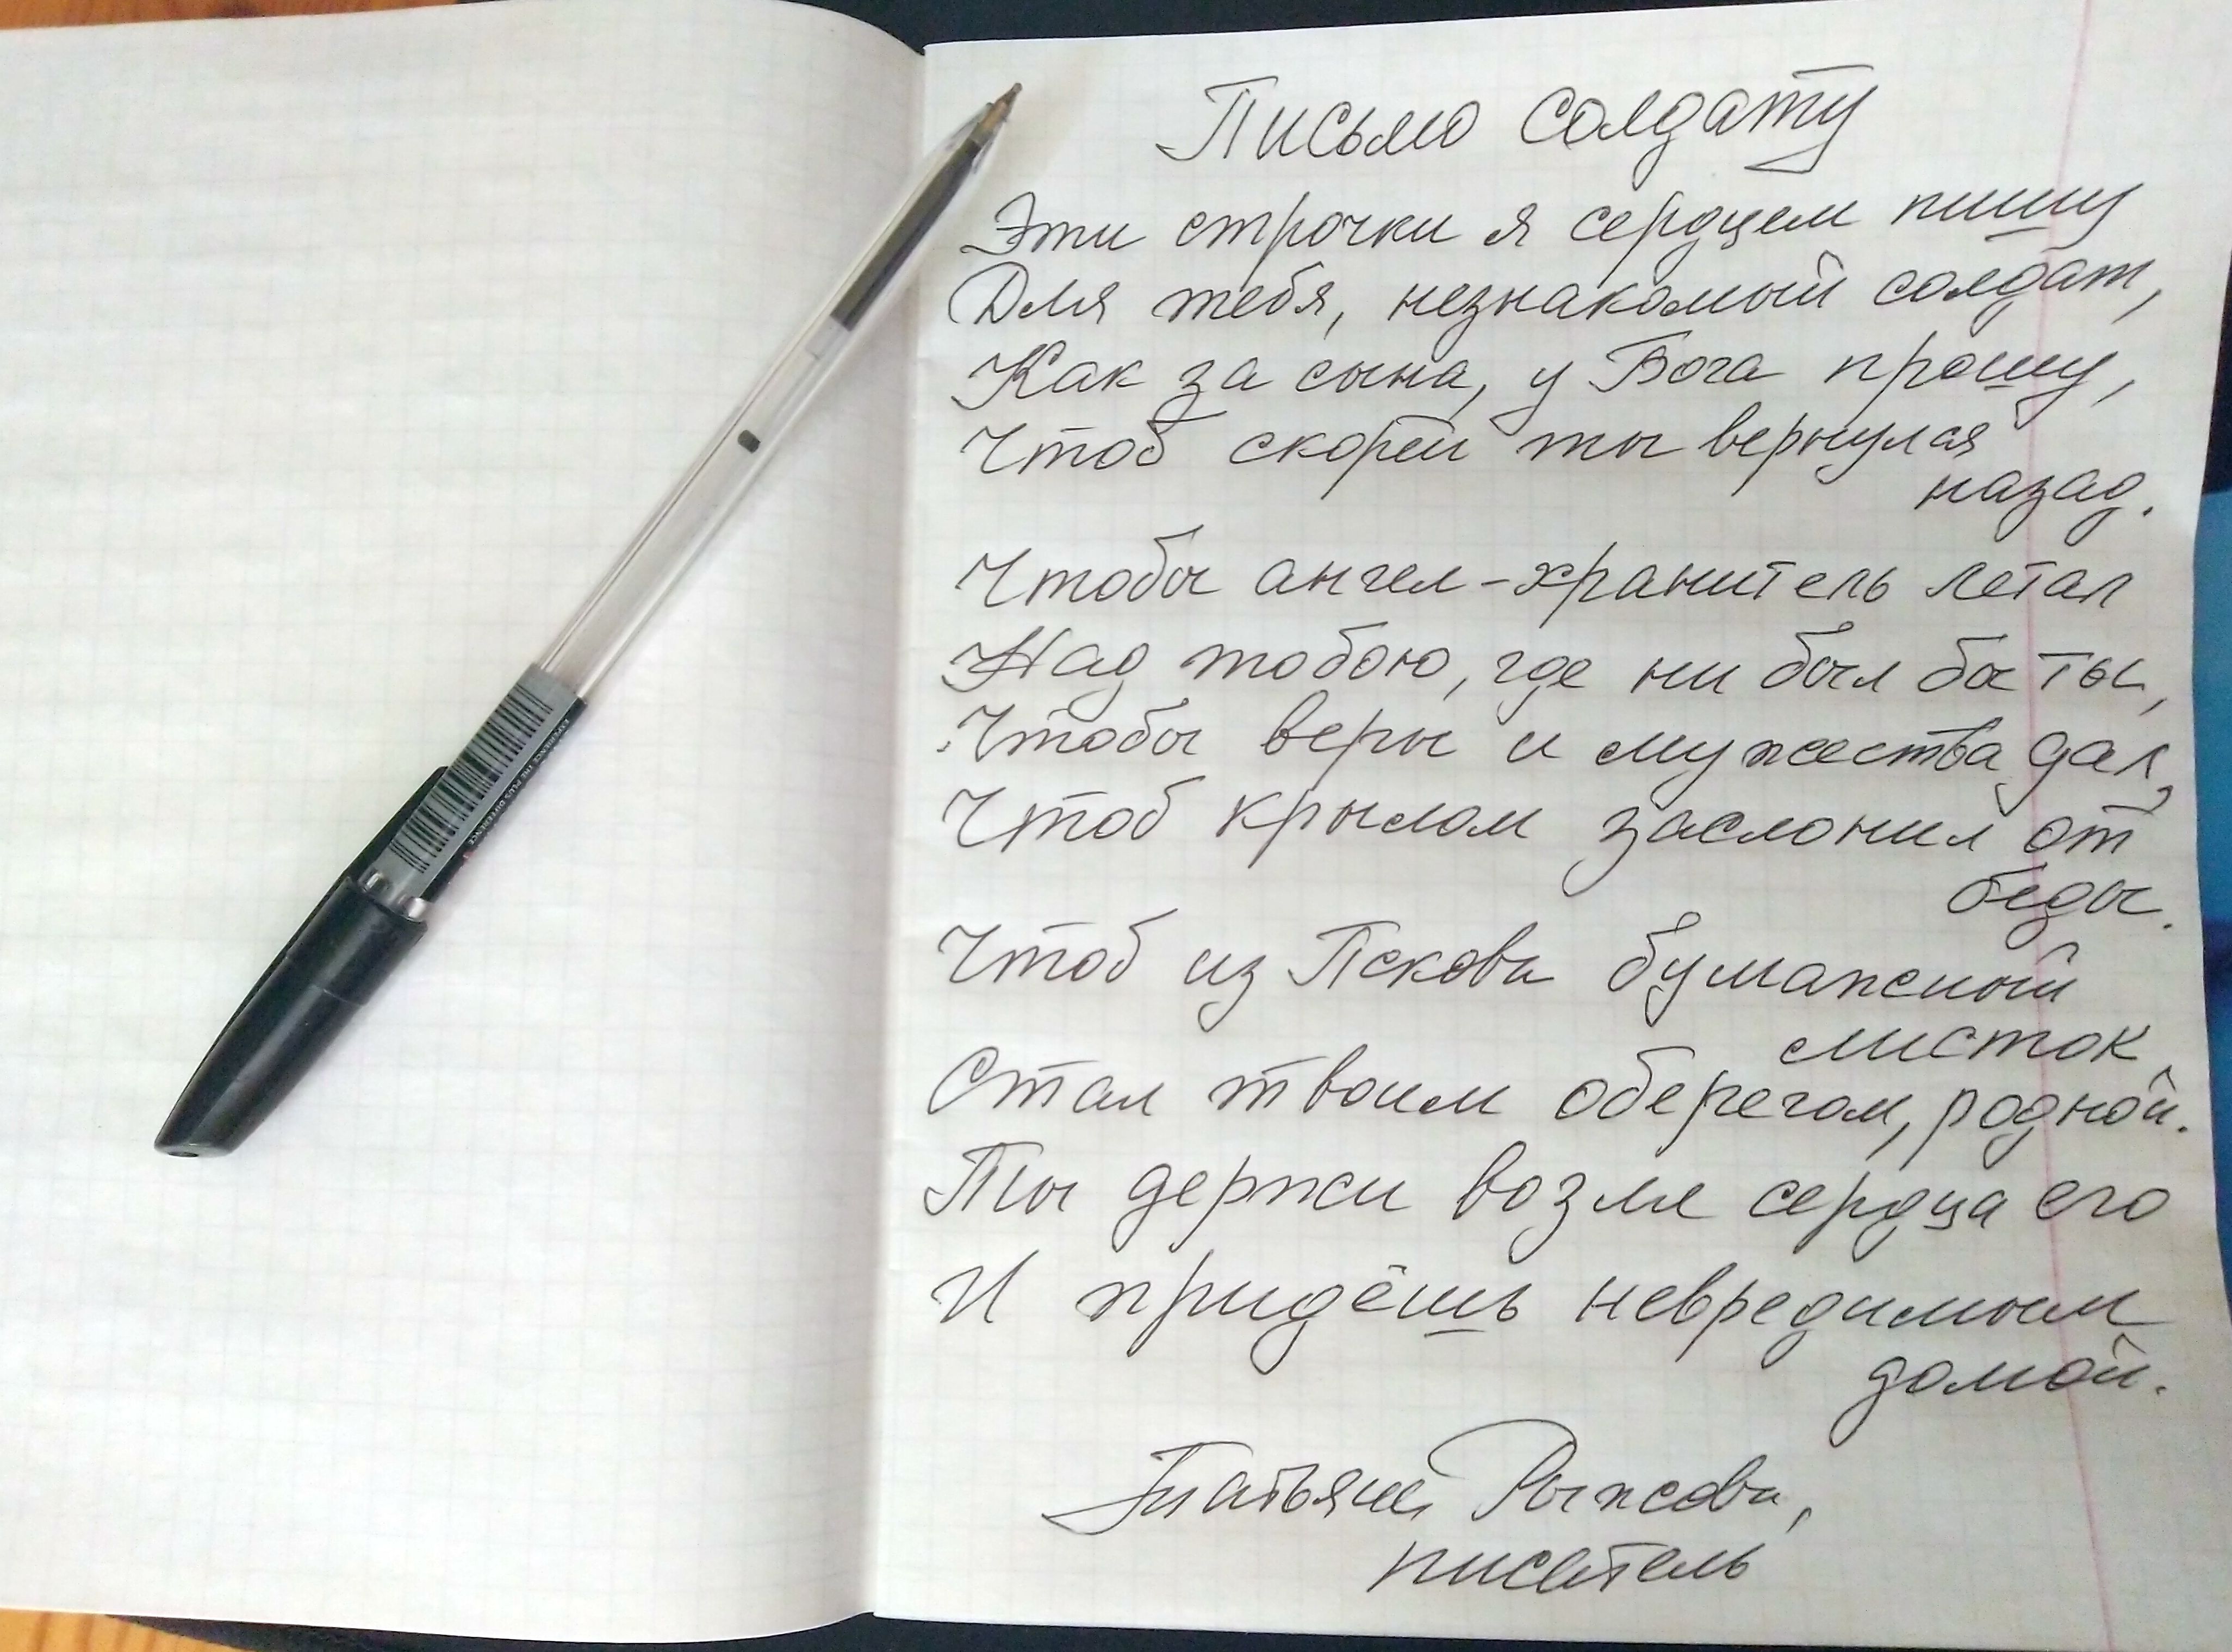 Письмо солдату
Эти строчки я сердцем пишу
Для тебя, незнакомый солдат,
Как за сына, у Бога прошу,
Чтоб скорей ты вернулся
назад.
Чтобы ангел-хранитель летал
Над тобою, где ни был бы ты,
Чтобы веры и мужества дал,
Чтоб крылом заслонил от
беды.
Чтоб из Пскова бумажный
листок
Стал твоим оберегом, родной.
Ты держи возле сердца его
И придёшь невредимым
домой.
Татьяна Рыжова,
писатель
EXPERIENCE THE PLUS DIFFERENCE